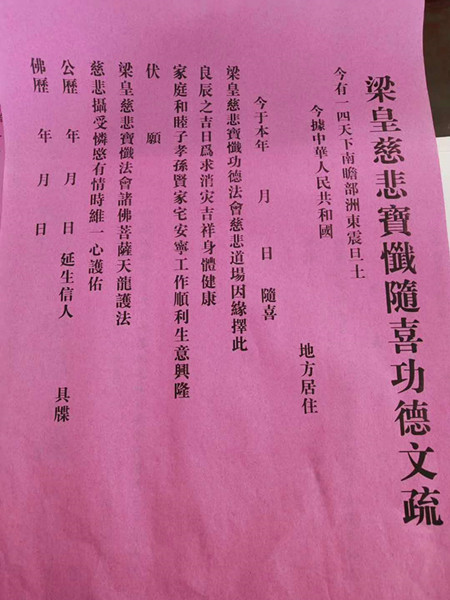 梁皇慈悲寶懺隨喜功德文疏
今有一四天下南瞻部洲東震旦土
今據中華人民共和國 地方居住
今于本年 月 日 隨喜
梁皇慈悲寶懺功德法會慈悲道場因緣擇此
良辰之吉日爲求消灾吉祥身體健康
家庭和睦子孝孫賢家宅安寧工作順利生意興隆
伏 願
梁皇慈悲寶懺法會諸佛菩薩天龍護法
慈悲攝受憐愍有情時維一心護佑
公歷 年 月 日 延生信人 具牒
佛歷 年 月 日